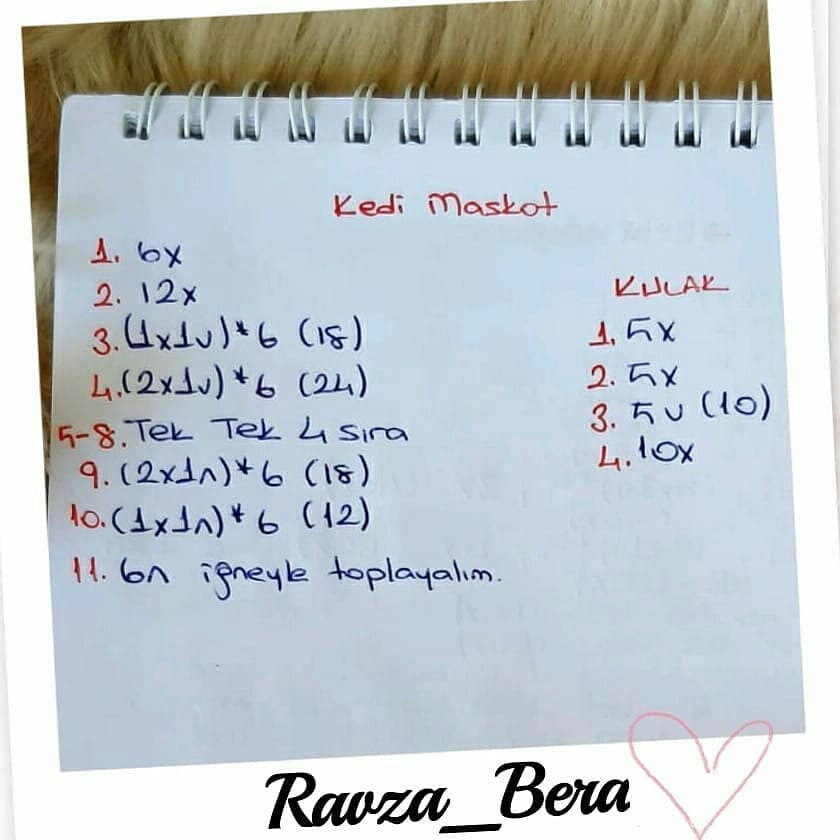 Kedi Maskot
1. 6x
2. 12x
3. (1x1v)*6 (18)
4. (2x1v)*6 (24)
5-8. Tek Tek 4 sıra
9. (2x1ʌ)*6 (18)
10. (1x1ʌ)*6 (12)
11. 6ʌ iğneyle toplayalım.
KULAK
1. 5x
2. 5x
3. 5v (10)
4. 10x
Ravza_Bera